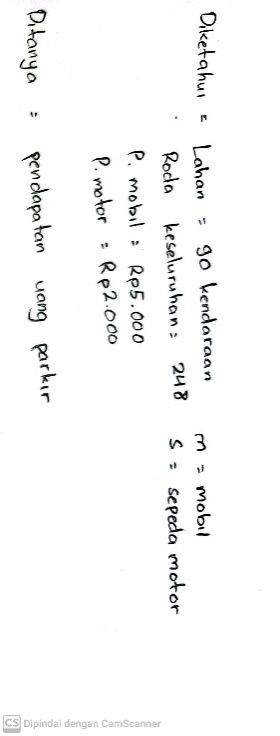 Diketahui = Lahan = 90 kendaraan m = mobil
Roda keseluruhan = 248 S = sepeda motor
P. mobil = Rp5.000
P. motor = Rp2.000
Ditanya = pendapatan uang parkir
CS Dipindai dengan CamScanner